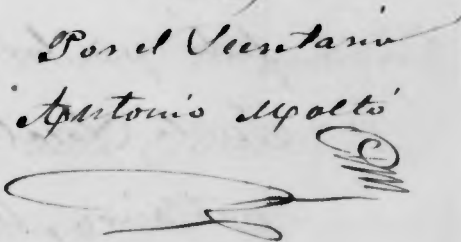 Por el Secretario
Antonio Moltó